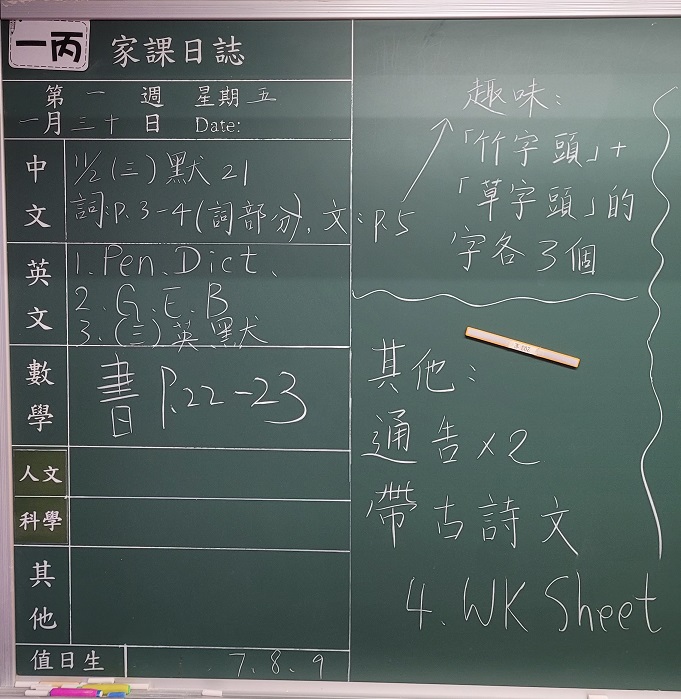 一丙 家課日誌
第一週 星期五
一月三十日 Date:
中文
11/2(三)默21
詞:P.3-4(詞部分), 文:P.5
英文
1. Pen. Dict.
2. G.E.B
3. (三)英默
數學
書 P.22-23
人文
科學
其他
值日生 7.8.9
趣味:
「竹字頭」+
「草字頭」的
字各3個
其他:
通告×2
帶古詩文
4. WK Sheet